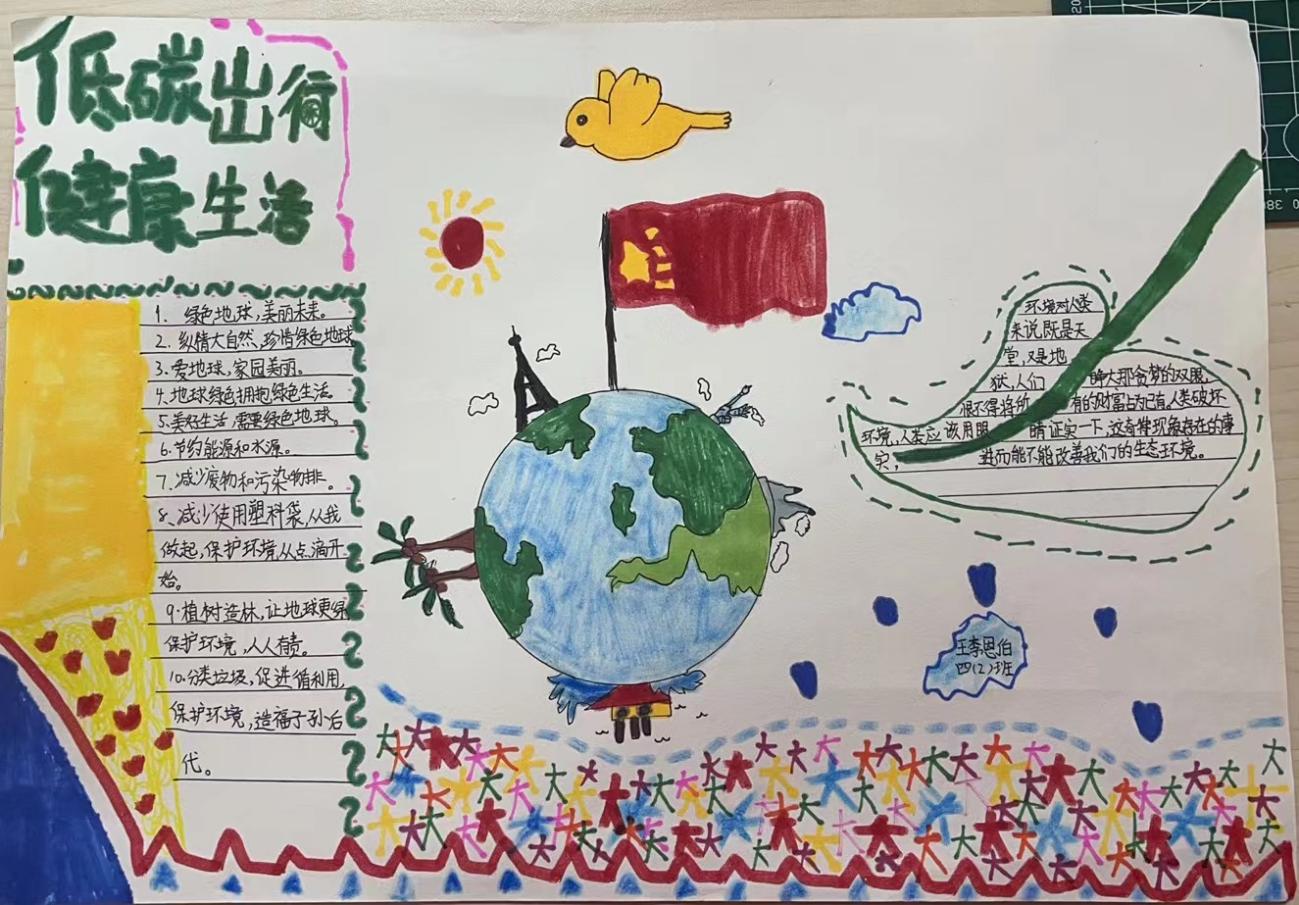 低碳出行
健康生活
1. 绿色地球,美丽未来。
2. 纵情大自然,珍惜绿色地球
3. 爱地球,家园美丽。
4. 地球绿色拥抱绿色生活。
5. 美好生活,需要绿色地球。
6. 节约能源和水源。
7. 减少废物和污染物排。
8. 减少使用塑料袋,从我
做起,保护环境,从点滴开
始。
9. 植树造林,让地球更绿
保护环境,人人有责。
10. 分类垃圾,促进循利用,
保护环境,造福子孙后
代。
环境对人类
来说既是天
堂,又是地
狱,人们 睁大那贪梦的双眼,
恨不得将所有的财富占为己有。人类破坏
环境,人类应该用眼睛证实一下,这奇怪现象存在的事
实, 进而能不能改善我们的生态环境。
王李恩伯
四(2)班